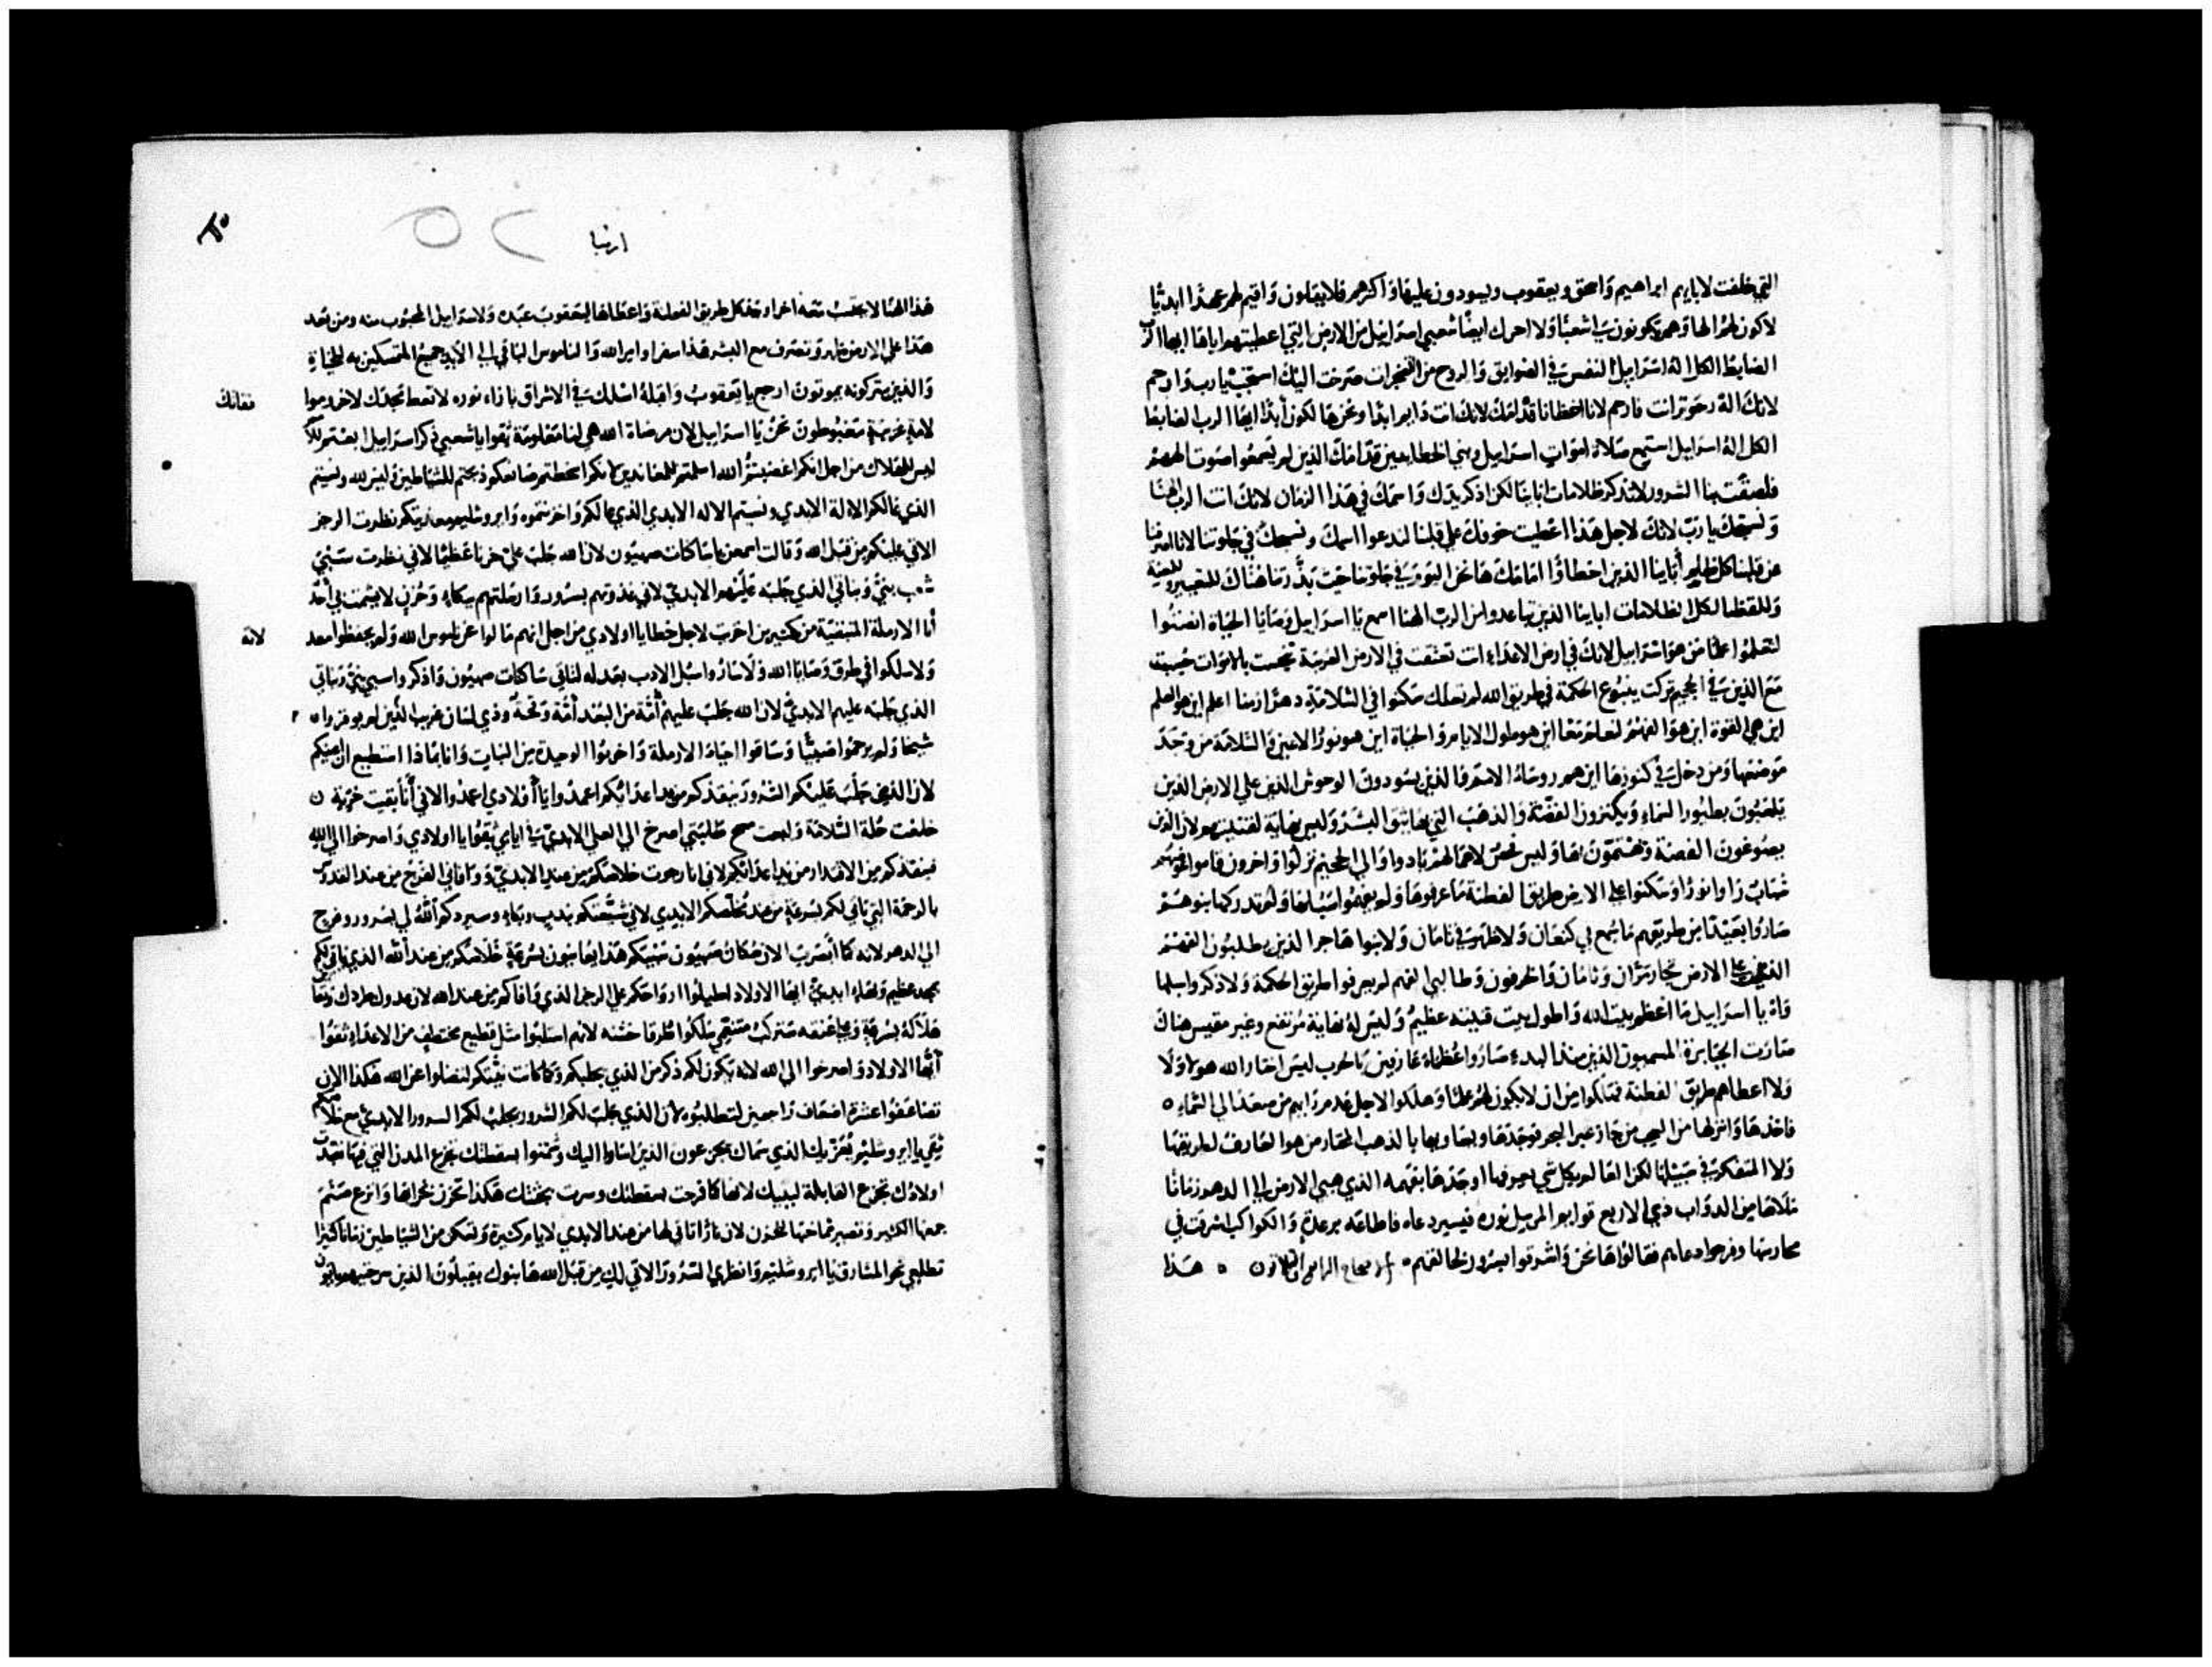 التي خلفت لابايهم ابراهيم واسحق ويعقوب ويسودون عليها واكثرهم فلا يقلون واقيم لهم عهدًا ابديًا
لاكون لهم الها وهم يكونون لي شعبًا ولا احرك ايضًا شعبي اسراييل من الارض التي اعطيتهم اياها ايها الرب
الضابط الكل اله اسراييل النفس في الضوايق والروح من الضجرات صرخت اليك استجب يا رب وارحم
لانك اله رحوم انت فارحم لاننا اخطانا قدامك لانك انت دايم ابدًا ونحن هالكون أبدًا ايها الرب الضابط
الكل اله اسراييل استمع صلاة اموات اسراييل وبني الخطايين قدامك الذين لم يسمعوا صوت الههم
فلصقت بنا الشرور لا تذكر ظلامات اباينا لكن اذكر يدك واسمك في هذا الزمان لانك انت الرب الهنا
ونسبحك يا رب لانك لاجل هذا اعطيت خوفك على قلبنا لندعوا اسمك ونسبحك في جلوتنا لاننا اصرفنا
عن قلبنا كل ظلم أباينا الذين اخطأوا امامك ها نحن اليوم في جلوتنا حيث بذرتنا هناك للتعيير وللعنة
وللقظا لكل ظلامات اباينا الذين تباعدوا من الرب الهنا اسمع يا اسراييل وصايا الحياة انصتوا
لتعلموا علمًا من هو اسراييل لانك في ارض الاعداء انت تعتقت في الارض الغريبة تنجست بالاموات حسبت
مع الذين في الجحيم تركت ينبوع الحكمة في طريق الله لو سلكت سكنوا في السلامة دهرًا زمنا اعلم اين هو العلم
اين هي القوة اين هو الفهم لتعلم معًا اين هو طول الايام والحياة اين هو نور الاعين والسلامة من وجد
موضعها ومن دخل في كنوزها اين هم روساء الامم والذين يسودون الوحوش الذين على الارض الذين
يلعبون بطيور السماء ويكنزون الفضة والذهب التي بها يثق البشر وليس نهاية لقنيتهم لان الذين
يصوغون الفضة ويهتمون بها وليس فحص لاعمالهم بادوا والى الجحيم نزلوا واخرون قاموا عوضهم
شباب راوا نورًا وسكنوا على الارض طريق الفطنة ما عرفوها ولم يفهموا سبلها ولم تدركها بنوهم
صاروا بعيدًا من طريقهم ما سُمع بي كنعان ولا ظهرت في تامان ولا بنوا هاجر الذين يطلبون الفهم
الذي على الارض تجار مرّان وتامان والخرفون وطالبي الفهم لم يعرفوا طريق الحكمة ولا ذكروا سبلها
واه يا اسراييل ما اعظم بيت الله واطول بيت قنيته عظيم وليس له نهاية مرتفع وغير مقيس هناك
صارت الجبابرة المسميون الذين منذ البدء صاروا عظماء عارفين بالحرب ليس اختار الله هولاء ولا
ولا اعطاهم طريق الفطنة فهلكوا من ان لا يكون لهم علمًا وهلكوا لاجل عدم رايهم من صعد الى السماء
فاخذها وانزلها من السحب من جاز عبر البحر فوجدها وجاء بها بالذهب المختار من هو العارف لطريقها
ولا المتفكر في سبيلها لكن العالم بكل شي يعرفها اوجدها بفهمه الذي هيى الارض الى الدهر زمانًا
ملاها من الدواب ذوي الاربع قوايم المرسل نوره فيسير دعاه فاطاعه برعدة والكواكب اشرقت في
محارسها وفرحوا دعاهم فقالوا ها نحن واشرقوا بسرور لخالقهم الاصحاح الرابع والثلاثون هذا
ارميا
هذا الهنا لا يحسب معه اخر اوجد كل طريق الفطنة واعطاها ليعقوب عبده ولاسراييل المحبوب منه ومن بعد
هذا على الارض ظهر وتصرف مع البشر هذا سفر اوامر الله والناموس الباقي الى الابد جميع المتمسكين به للحياة
والذين يتركونه يموتون ارجع يا يعقوب واقبله اسلك في الاشراق بازاء نوره لا تعط مجدك لاخر وموافقاتك
لامة غريبة مغبوطون نحن يا اسراييل لان مرضاة الله هي لنا معلومة ثقوا يا شعبي ذكر اسراييل ابعتم للامم
ليس للهلاك من اجل انكم اغضبتم الله اسلمتم للمعاندين لانكم اسخطتم صانعكم وذبحتم للشياطين وليس لله ونسيتم
الذي عالكم الاله الابدي ونسيتم الاله الابدي الذي عالكم واحزنتموه وايروشليم معها ربتكم نظرت الرجز
الاتي عليكم من قبل الله وقالت اسمعن يا ساكنات صهيون لان الله جلب علي حزنا عظيمًا لاني نظرت سبي
شعب بنيّ وبناتي الذي جلبه عليهم الابدي لاني غذوتهم بسرور وارسلتهم ببكاء وحزن لا يشمت بي أحد
أنا الارملة المتبقية من كثيرين اخربت لاجل خطايا اولادي من اجل انهم مالوا عن ناموس الله ولم يحفظوا عدله
لانه
ولا سلكوا في طرق وصايا الله ولا ساروا سبل الادب بعدله لتاتي ساكنات صهيون واذكروا سبي بنيّ وبناتي
الذي جلبه عليهم الابدي لان الله جلب عليهم أمة من البعد أمة وقحة وذي لسان غريب الذين لم يوقروا
شيخا ولم يرحموا صبيًا وساقوا احباء الارملة واحرموا الوحيدة من البنات وانا بماذا استطيع ان اعينكم
لان الذي جلب عليكم الشرور ينقذكم من يد اعدائكم اعمدوا يا أولادي اعمدوا لاني أنا بقيت خربة
خلعت حلة السلامة ولبست مسح طلبتي اصرخ الى العلي الابدي في ايامي ثقوا يا اولادي واصرخوا الى الله
فينقذكم من الاقتدار من يد اعدائكم لاني انا رجوت خلاصكم من عند الابدي ووافاني الفرح من عند القدوس
بالرحمة التي تاتي لكم بسرعة من عند مخلصكم الابدي لاني شيعتكم بندب وبكاء وسيردكم الله لي بسرور وفرح
الى الدهر لانه كما أبصرن الان مكان صهيون سبيكم هكذا يعاينون بسرعة خلاصكم من عند الله الذي ياتي لكم
بمجد عظيم وبهاء ابدي ايها الاولاد اطيلوا ارواحكم على الرجز الذي وافاكم من عند الله لان عدوك طردك وتعاين
هلاكه بسرعة وعلى عنقه ستركب متنعمي سلكوا طرقا خشنه لانهم استلبوا مثل قطيع مختطف من الاعداء ثقوا
أيها الاولاد واصرخوا الى الله لانه يكون لكم ذكر من الذي يجلبكم وكما كانت نيتكم لتضلوا عن الله هكذا الان
تضاعفوا عشرة اضعاف راجعين لتطلبوه لان الذي جلب لكم الشرور يجلب لكم السرور الابدي مع خلاصكم
ثقي يا ايروشليم يعزيك الذي سماك يجزعون الذين اساوا اليك وشمتوا بسقطتك تجزع المدن التي فيها تعبدت
اولادك تجزع القابلة لبنيك لانها كما فرحت بسقطتك وسرت بجثتك هكذا تحزن بخرابها وانزع صنم
جمعها الكثير وتصير شماختها للحزن لان نارًا تاتي لها من عند الابدي لايام كثيرة وتسكن من الشياطين زمانا كثيرا
تطلعي نحو المشارق يا ايروشليم وانظري السرور الاتي لك من قبل الله ها بنوك يقبلون الذين سرحتيهم ياتون